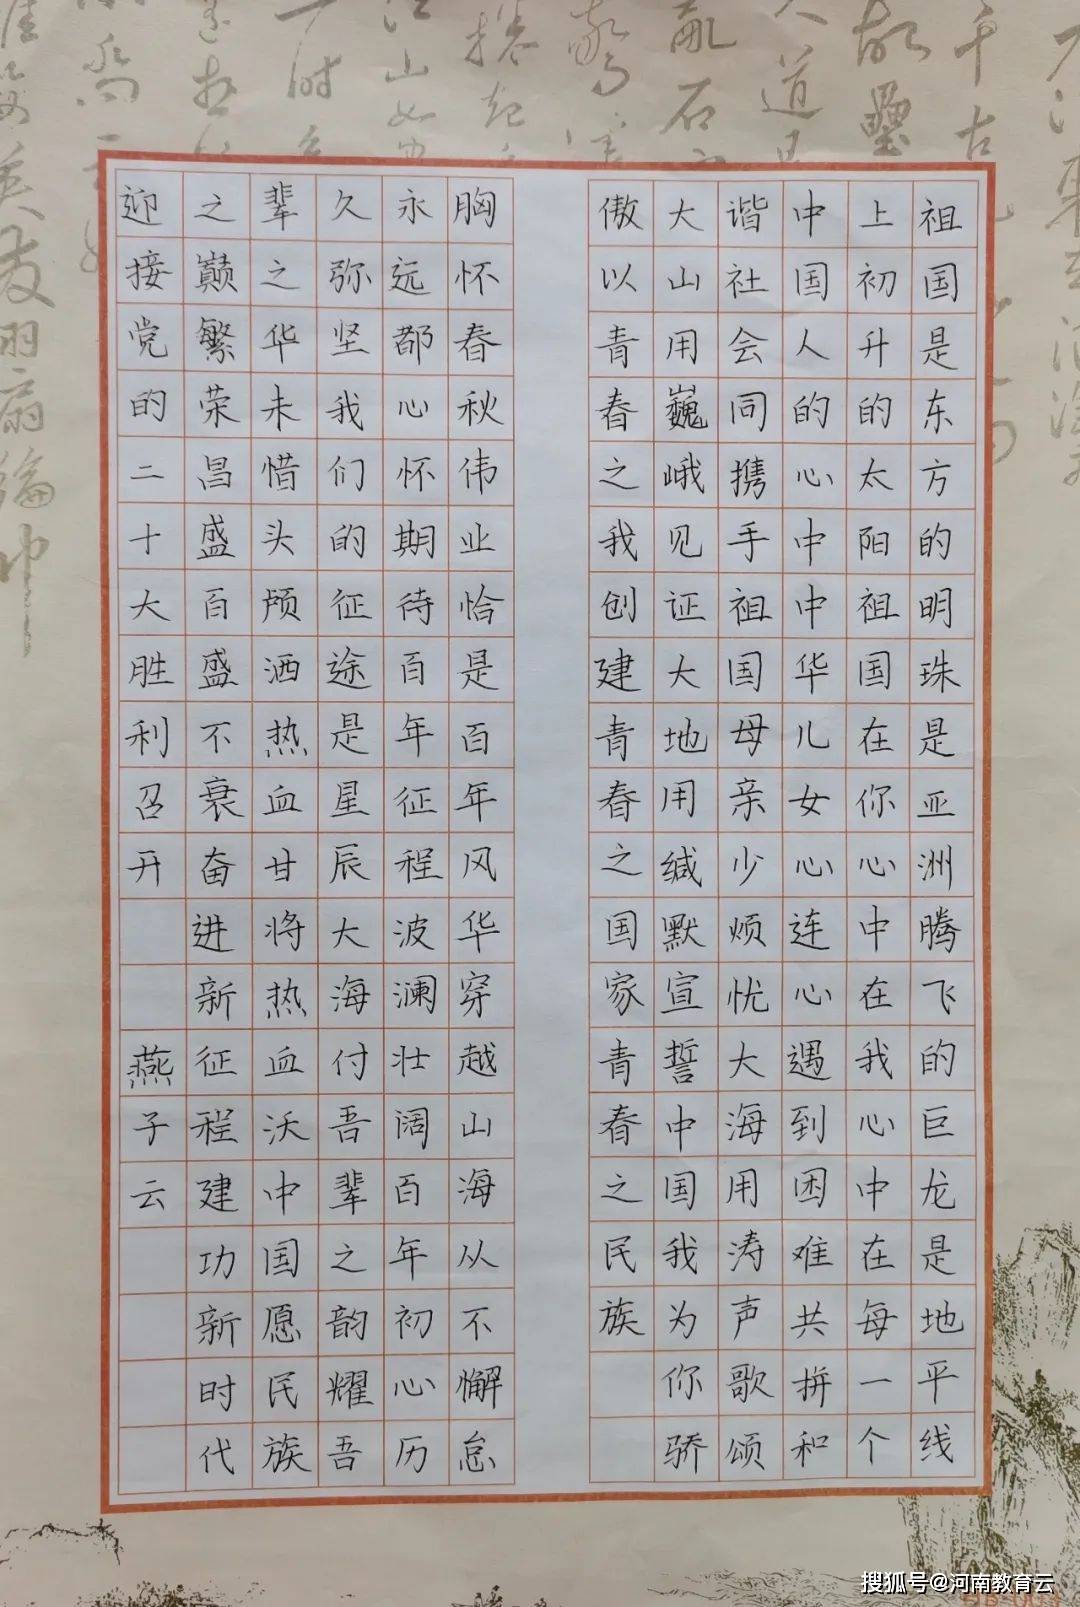 祖国是东方的明珠是亚洲腾飞的巨龙是地平线
上初升的太阳祖国在你心中在我心中在每一个
中国人的心中中华儿女心连心遇到困难共拼和
谐社会同携手祖国母亲少烦忧大海用涛声歌颂
大山用巍峨见证大地用缄默宣誓中国我为你骄
傲以青春之我创建青春之国家青春之民族
胸怀春秋伟业恰是百年风华穿越山海从不懈怠
永远都心怀期待百年征程波澜壮阔百年初心历
久弥坚我们的征途是星辰大海付吾辈之韵耀吾
辈之华未惜头颅洒热血甘将热血沃中国愿民族
之巅繁荣昌盛百盛不衰奋进新征程建功新时代
迎接党的二十大胜利召开 燕子云
搜狐号@河南教育云